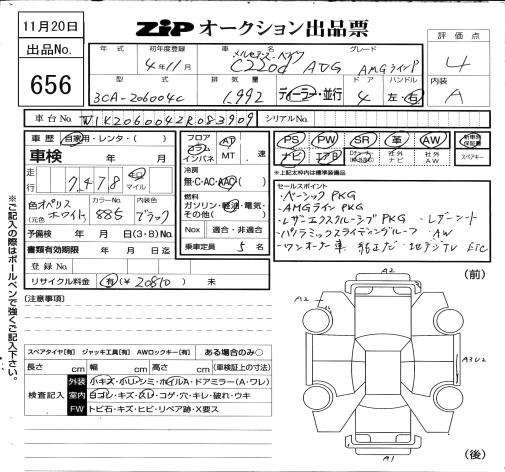 11月20日
ZIP オークション出品票
出品No.
656
評価点
4
内装
A
年式 初年度登録 車名 グレード
4年11月 メルセデス・ベンツ C220d AVG AMGライン
型式 排気量 ドア ハンドル
3CA-206004C 1,992 ディーラー・並行 4 左・右
車台No. W1K2060042R083909 シリアルNo.
車歴 自家用・レンタ・( )
車検 年 月
走行 7,478 km マイル
色 オパリスホワイト カラーNo. 885 内装色 ブラック
(元色 )
予備検 年 月 日(3・8)No.
書類有効期限 年 月 日
登録No.
リサイクル料金 有(¥20810) 未
フロア コラム インパネ AT MT 速
冷房
無・C・AC・AAC( )
燃料
ガソリン・軽油・電気・その他( )
Nox 適合・非適合
乗車定員 5名
PS PW SR 革 AW 新車時保証書
ナビ エアB 社外ナビ 社外AW スペアキー
※上記太枠内は標準装備品
セールスポイント
・ベーシックPKG
・AMGラインPKG
・レザーエクスクルーシブPKG ・レザーシート
・パノラミックスライディングルーフ ・AW
・ワンオーナー車・純正ナビ・地デジTV ETC
(注意事項)
※ご記入の際はボールペンで強くご記入下さい。
スペアタイヤ[有] ジャッキ工具[有] AWロックキー[有] ある場合のみ○
長さ cm 幅 cm 高さ cm (車検証上の寸法)
検査記入
外装 小キズ・小リ・シミ・ホイルA・ドアミラー(A・ワレ)
室内 ヨゴレ・キズ・スレ・コゲ・穴・キレ・破れ・ウキ
FW トビ石・キズ・ヒビ・リペア跡・X要ス
(前)
A2
A2
A3U2
A1
(後)